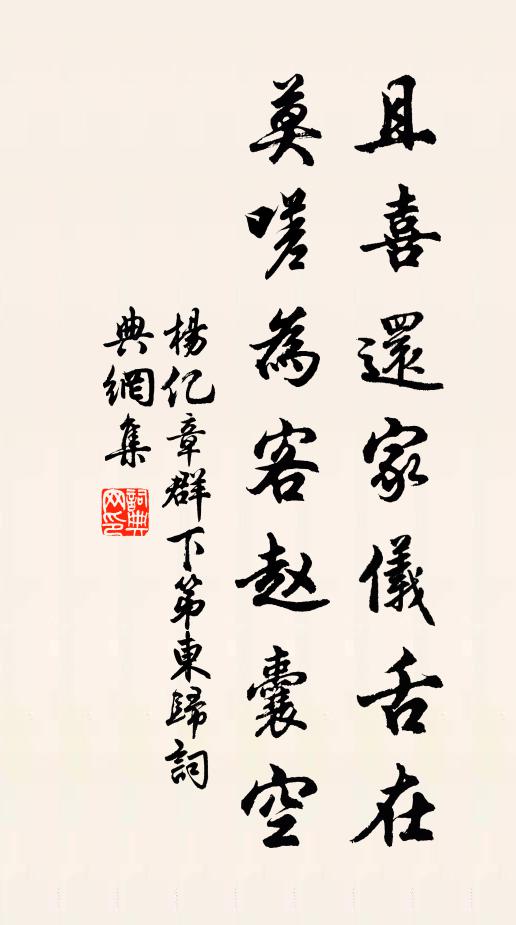 且喜還家儀舌在
莫嗟為客赵囊空
楊亿章群下第東歸詞
典網集
詞典网印